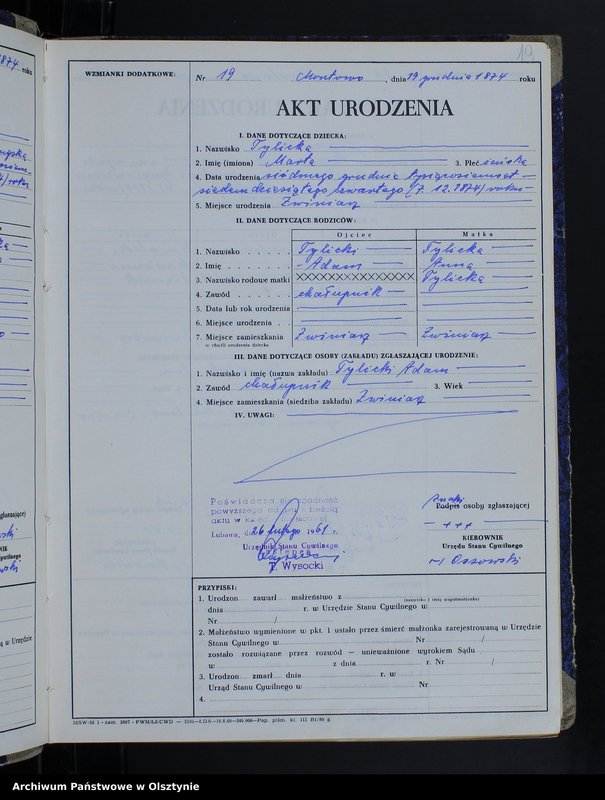 112
WZMIANKI DODATKOWE:
Nr 19 Montowo, dnia 29 grudnia 1874 roku
AKT URODZENIA
I. DANE DOTYCZĄCE DZIECKA:
1. Nazwisko Tylicka
2. Imię (imiona) Marta 3. Płeć żeńska
4. Data urodzenia siódmego grudnia tysiąc osiemset
siedemdziesiątego czwartego (7. 12. 1874) roku
5. Miejsce urodzenia Zwiniarz
II. DANE DOTYCZĄCE RODZICÓW:
Ojciec Matka
1. Nazwisko Tylicki Tylicka
2. Imię Adam Anna
3. Nazwisko rodowe matki XXXXXXXXXXXXX Tylicka
4. Zawód chałupnik
5. Data lub rok urodzenia
6. Miejsce urodzenia
7. Miejsce zamieszkania Zwiniarz Zwiniarz
w chwili urodzenia dziecka
III. DANE DOTYCZĄCE OSOBY (ZAKŁADU) ZGŁASZAJĄCEJ URODZENIE:
1. Nazwisko i imię (nazwa zakładu) Tylicki Adam
2. Zawód chałupnik 3. Wiek
4. Miejsce zamieszkania (siedziba zakładu) Zwiniarz
IV. UWAGI:
Poświadcza się zgodność
powyższego odpisu z treścią
aktu w księdze
Lubawa, dn. 26 lutego 1961 r.
Urzędnik Stanu Cywilnego
T. Wysocki
znaki
Podpis osoby zgłaszającej
- +++ -
KIEROWNIK
Urzędu Stanu Cywilnego
-/ Ossowski
PRZYPISKI:
1. Urodzon zawarł małżeństwo z
(nazwisko i imię współmałżonka)
dnia r. w Urzędzie Stanu Cywilnego w
Nr /
2. Małżeństwo wymienione w pkt. 1 ustało przez śmierć małżonka zarejestrowaną w Urzędzie
Stanu Cywilnego w Nr /
zostało rozwiązane przez rozwód — unieważnione wyrokiem Sądu
w z dnia r. Nr /
3. Urodzon zmarł dnia r. w
Urząd Stanu Cywilnego w Nr
4.
Archiwum Państwowe w Olsztynie